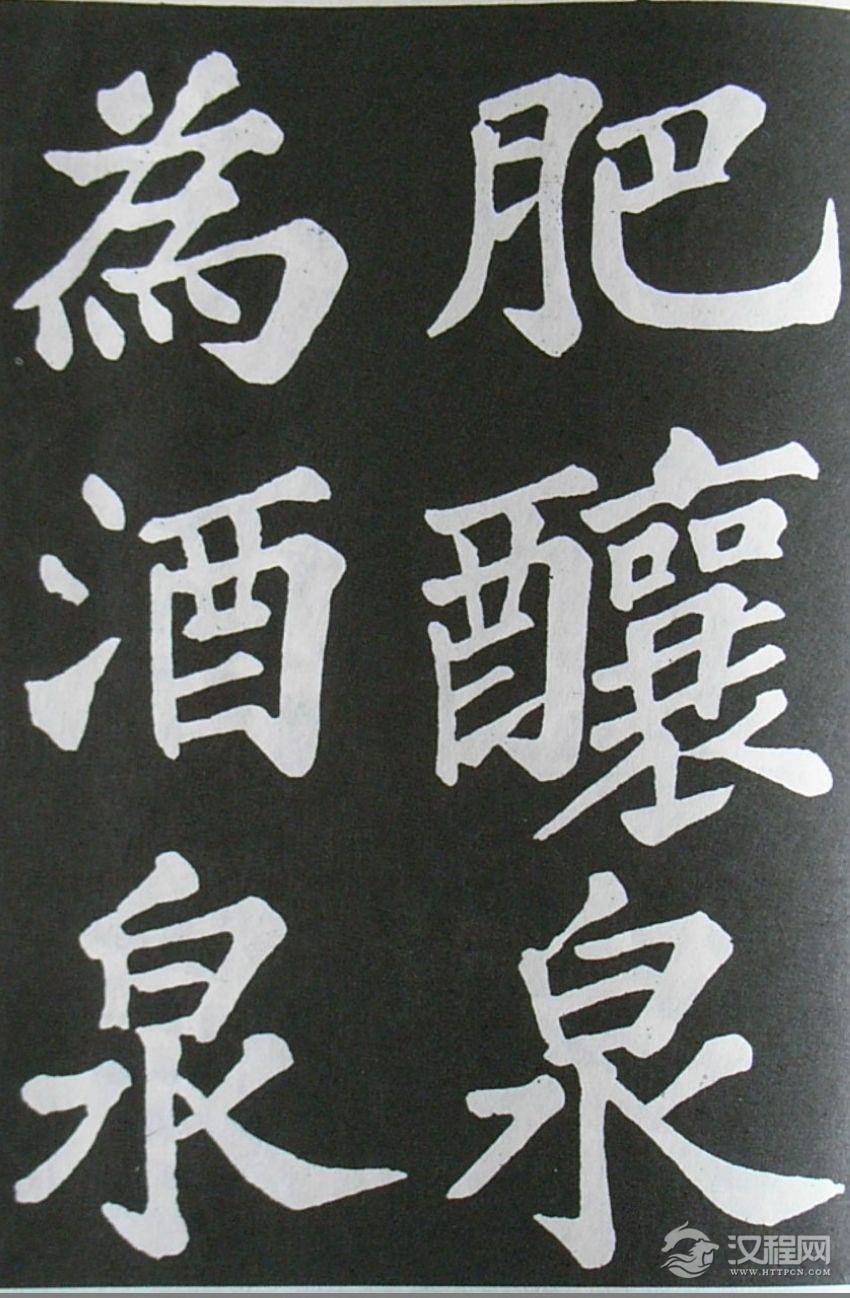 肥釀泉
為酒泉
汉程网
WWW.HTTPCN.COM